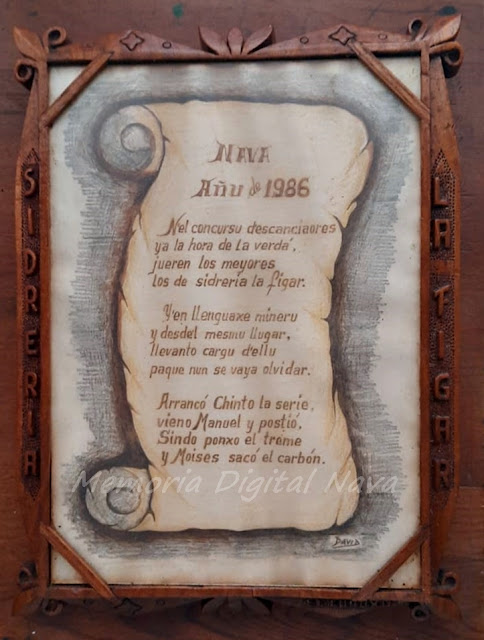 NAVA
Añu de 1986
Nel concursu descanciaores
ya la hora de la verdá,
jueren los meyores
los de sidrería la figar.
Y'en llenguaxe mineru
y desdel mesmu llugar,
llevanto cargu d'ellu
paque nun se vaya olvidar.
Arrancó Chinto la serie,
vieno Manuel y postió,
Sindo ponxo el tréme
y Moises sacó el carbón.
DAVID
SIDRERIA
LA FIGAR
Memoria Digital Nava